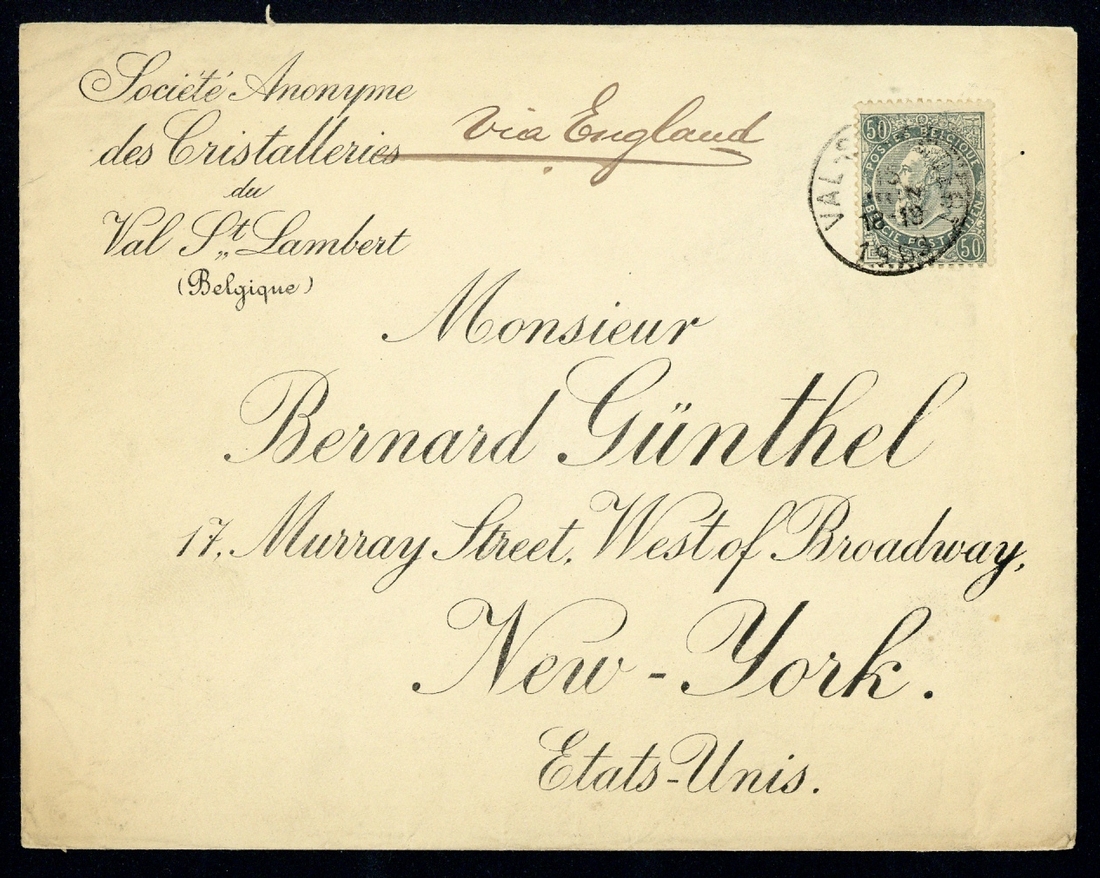 Société Anonyme
des Cristalleries
du
Val St. Lambert
(Belgique)
via England
50 50
POSTES BELGIQUE
BELGIE POSTERIJEN
50
VAL
18-19
Monsieur
Bernard Günthel
17, Murray Street, West of Broadway,
New-York.
Etats-Unis.